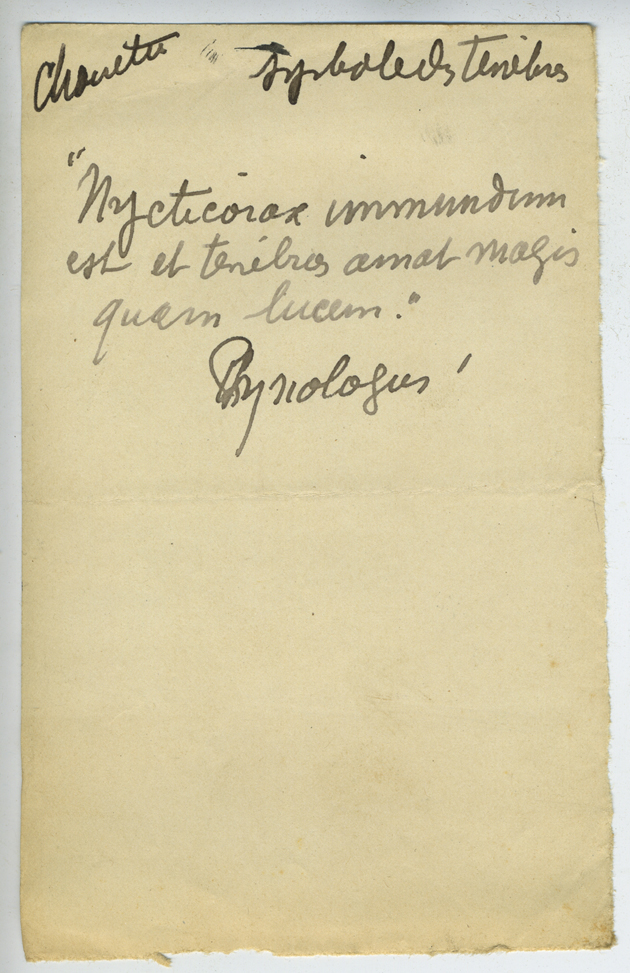 Chouette symbole des ténèbres
"Nycticorax immundum
est et tenébras amat magis
quam lucem."
Physiologus